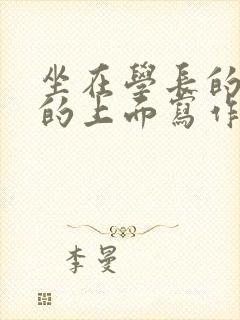 坐在學長的
的上而寫作
李曼